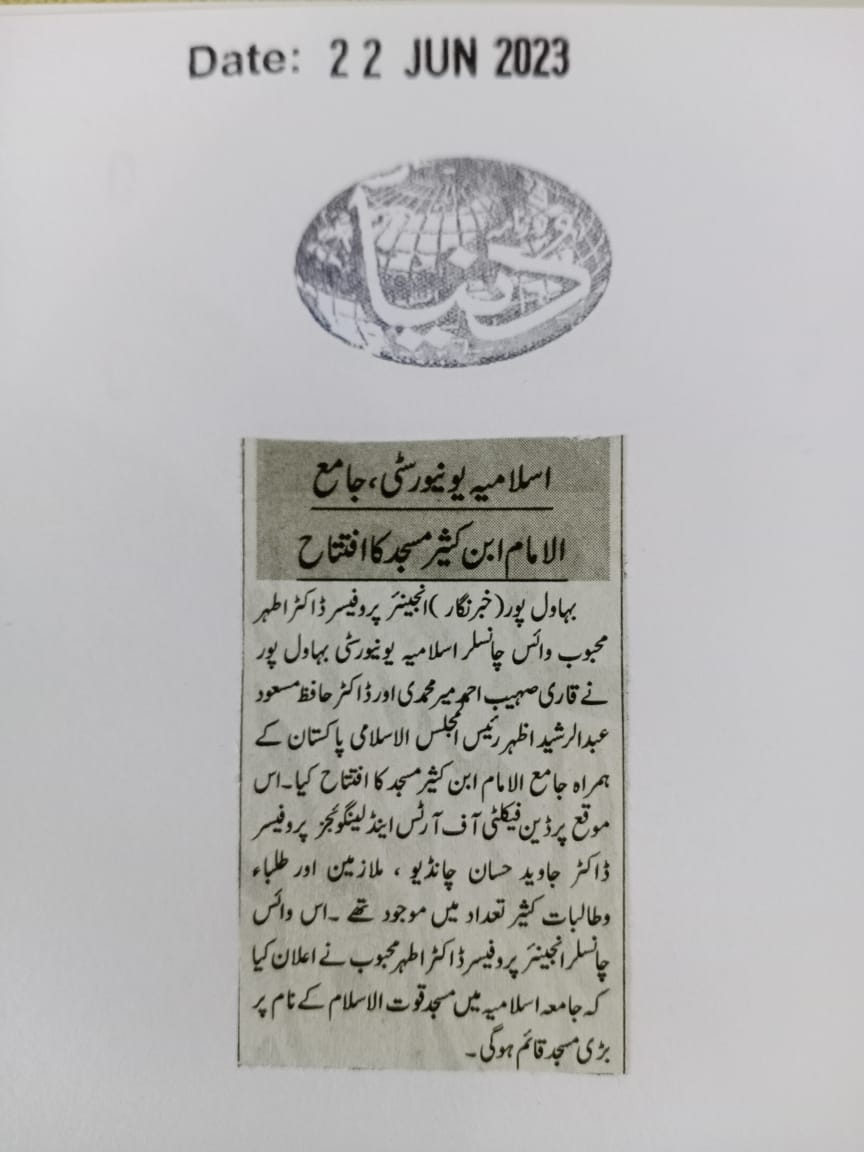 Date: 22 JUN 2023
روزنامہ
دنیا
اسلامیہ یونیورسٹی، جامع
الامام ابن کثیر مسجد کا افتتاح
بہاول پور (خبر نگار) انجینئر پروفیسر ڈاکٹر اطہر
محبوب وائس چانسلر اسلامیہ یونیورسٹی بہاول پور
نے قاری صہیب احمد میر محمدی اور ڈاکٹر حافظ مسعود
عبدالرشید اظہر رئیس المجلس الاسلامی پاکستان کے
ہمراہ جامع الامام ابن کثیر مسجد کا افتتاح کیا۔ اس
موقع پر ڈین فیکلٹی آف آرٹس اینڈ لینگوئجز پروفیسر
ڈاکٹر جاوید حسان چانڈیو ، ملازمین اور طلباء
وطالبات کثیر تعداد میں موجود تھے ۔ اس وائس
چانسلر انجینئر پروفیسر ڈاکٹر اطہر محبوب نے اعلان کیا
کہ جامعہ اسلامیہ میں مسجد قوت الاسلام کے نام پر
بڑی مسجد قائم ہوگی ۔